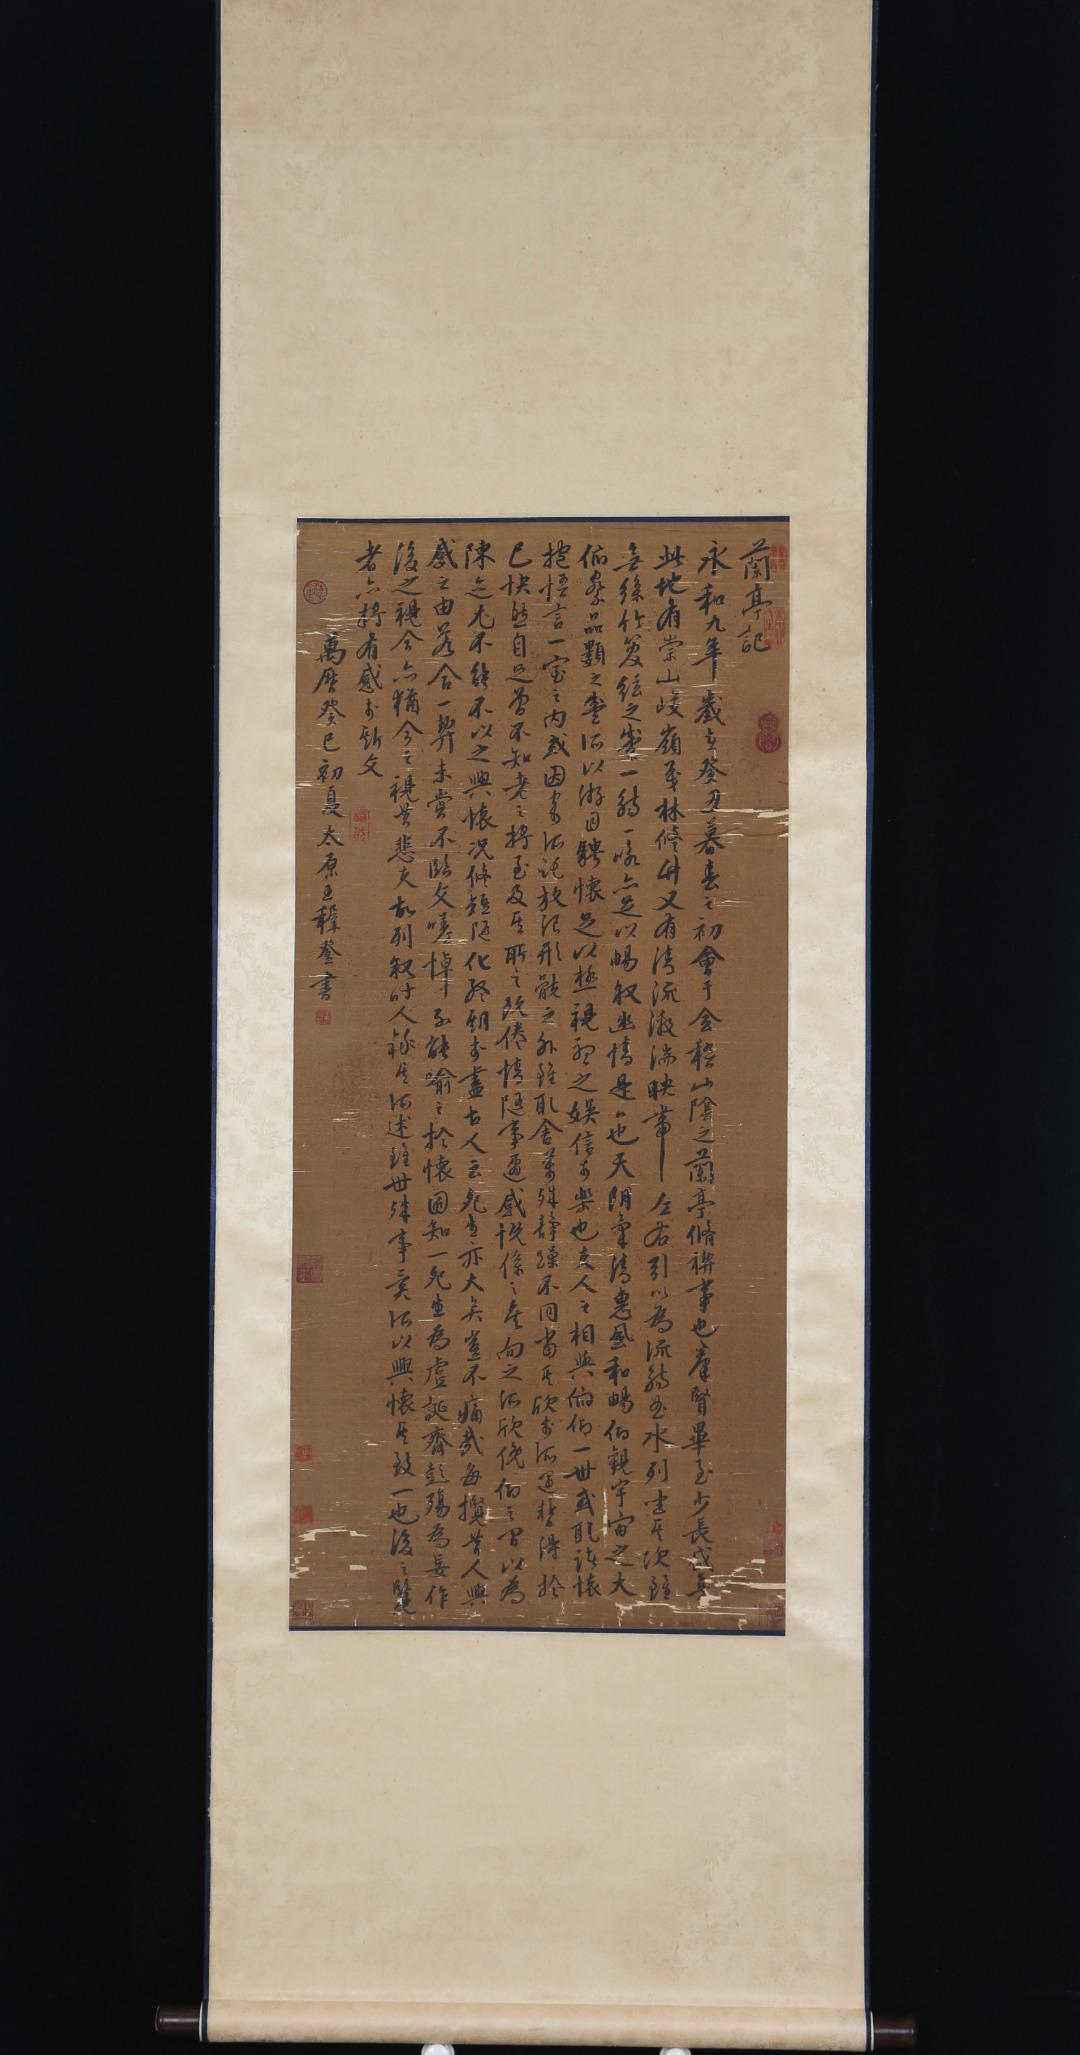 蘭亭記
永和九年歲在癸丑暮春之初會于會稽山陰之蘭亭脩禊事也羣賢畢至少長咸集
此地有崇山峻嶺茂林脩竹又有清流激湍映帶左右引以為流觴曲水列坐其次雖
無絲竹管絃之盛一觴一詠亦足以暢敘幽情是日也天朗氣清惠風和暢仰觀宇宙之大
俯察品類之盛所以游目騁懷足以極視聽之娛信可樂也夫人之相與俯仰一世或取諸懷
抱悟言一室之內或因寄所託放浪形骸之外雖取舍萬殊靜躁不同當其欣於所遇暫得於
己快然自足曾不知老之將至及其所之既倦情隨事遷感慨係之矣向之所欣俛仰之間以為
陳迹尤不能不以之興懷况脩短隨化終期於盡古人云死生亦大矣豈不痛哉每攬昔人興
感之由若合一契未嘗不臨文嗟悼不能喻之於懷固知一死生為虛誕齊彭殤為妄作
後之視今亦猶今之視昔悲夫故列敘時人錄其所述雖世殊事異所以興懷其致一也後之覽
者亦將有感於斯文
萬曆癸巳初夏太原王穉登書